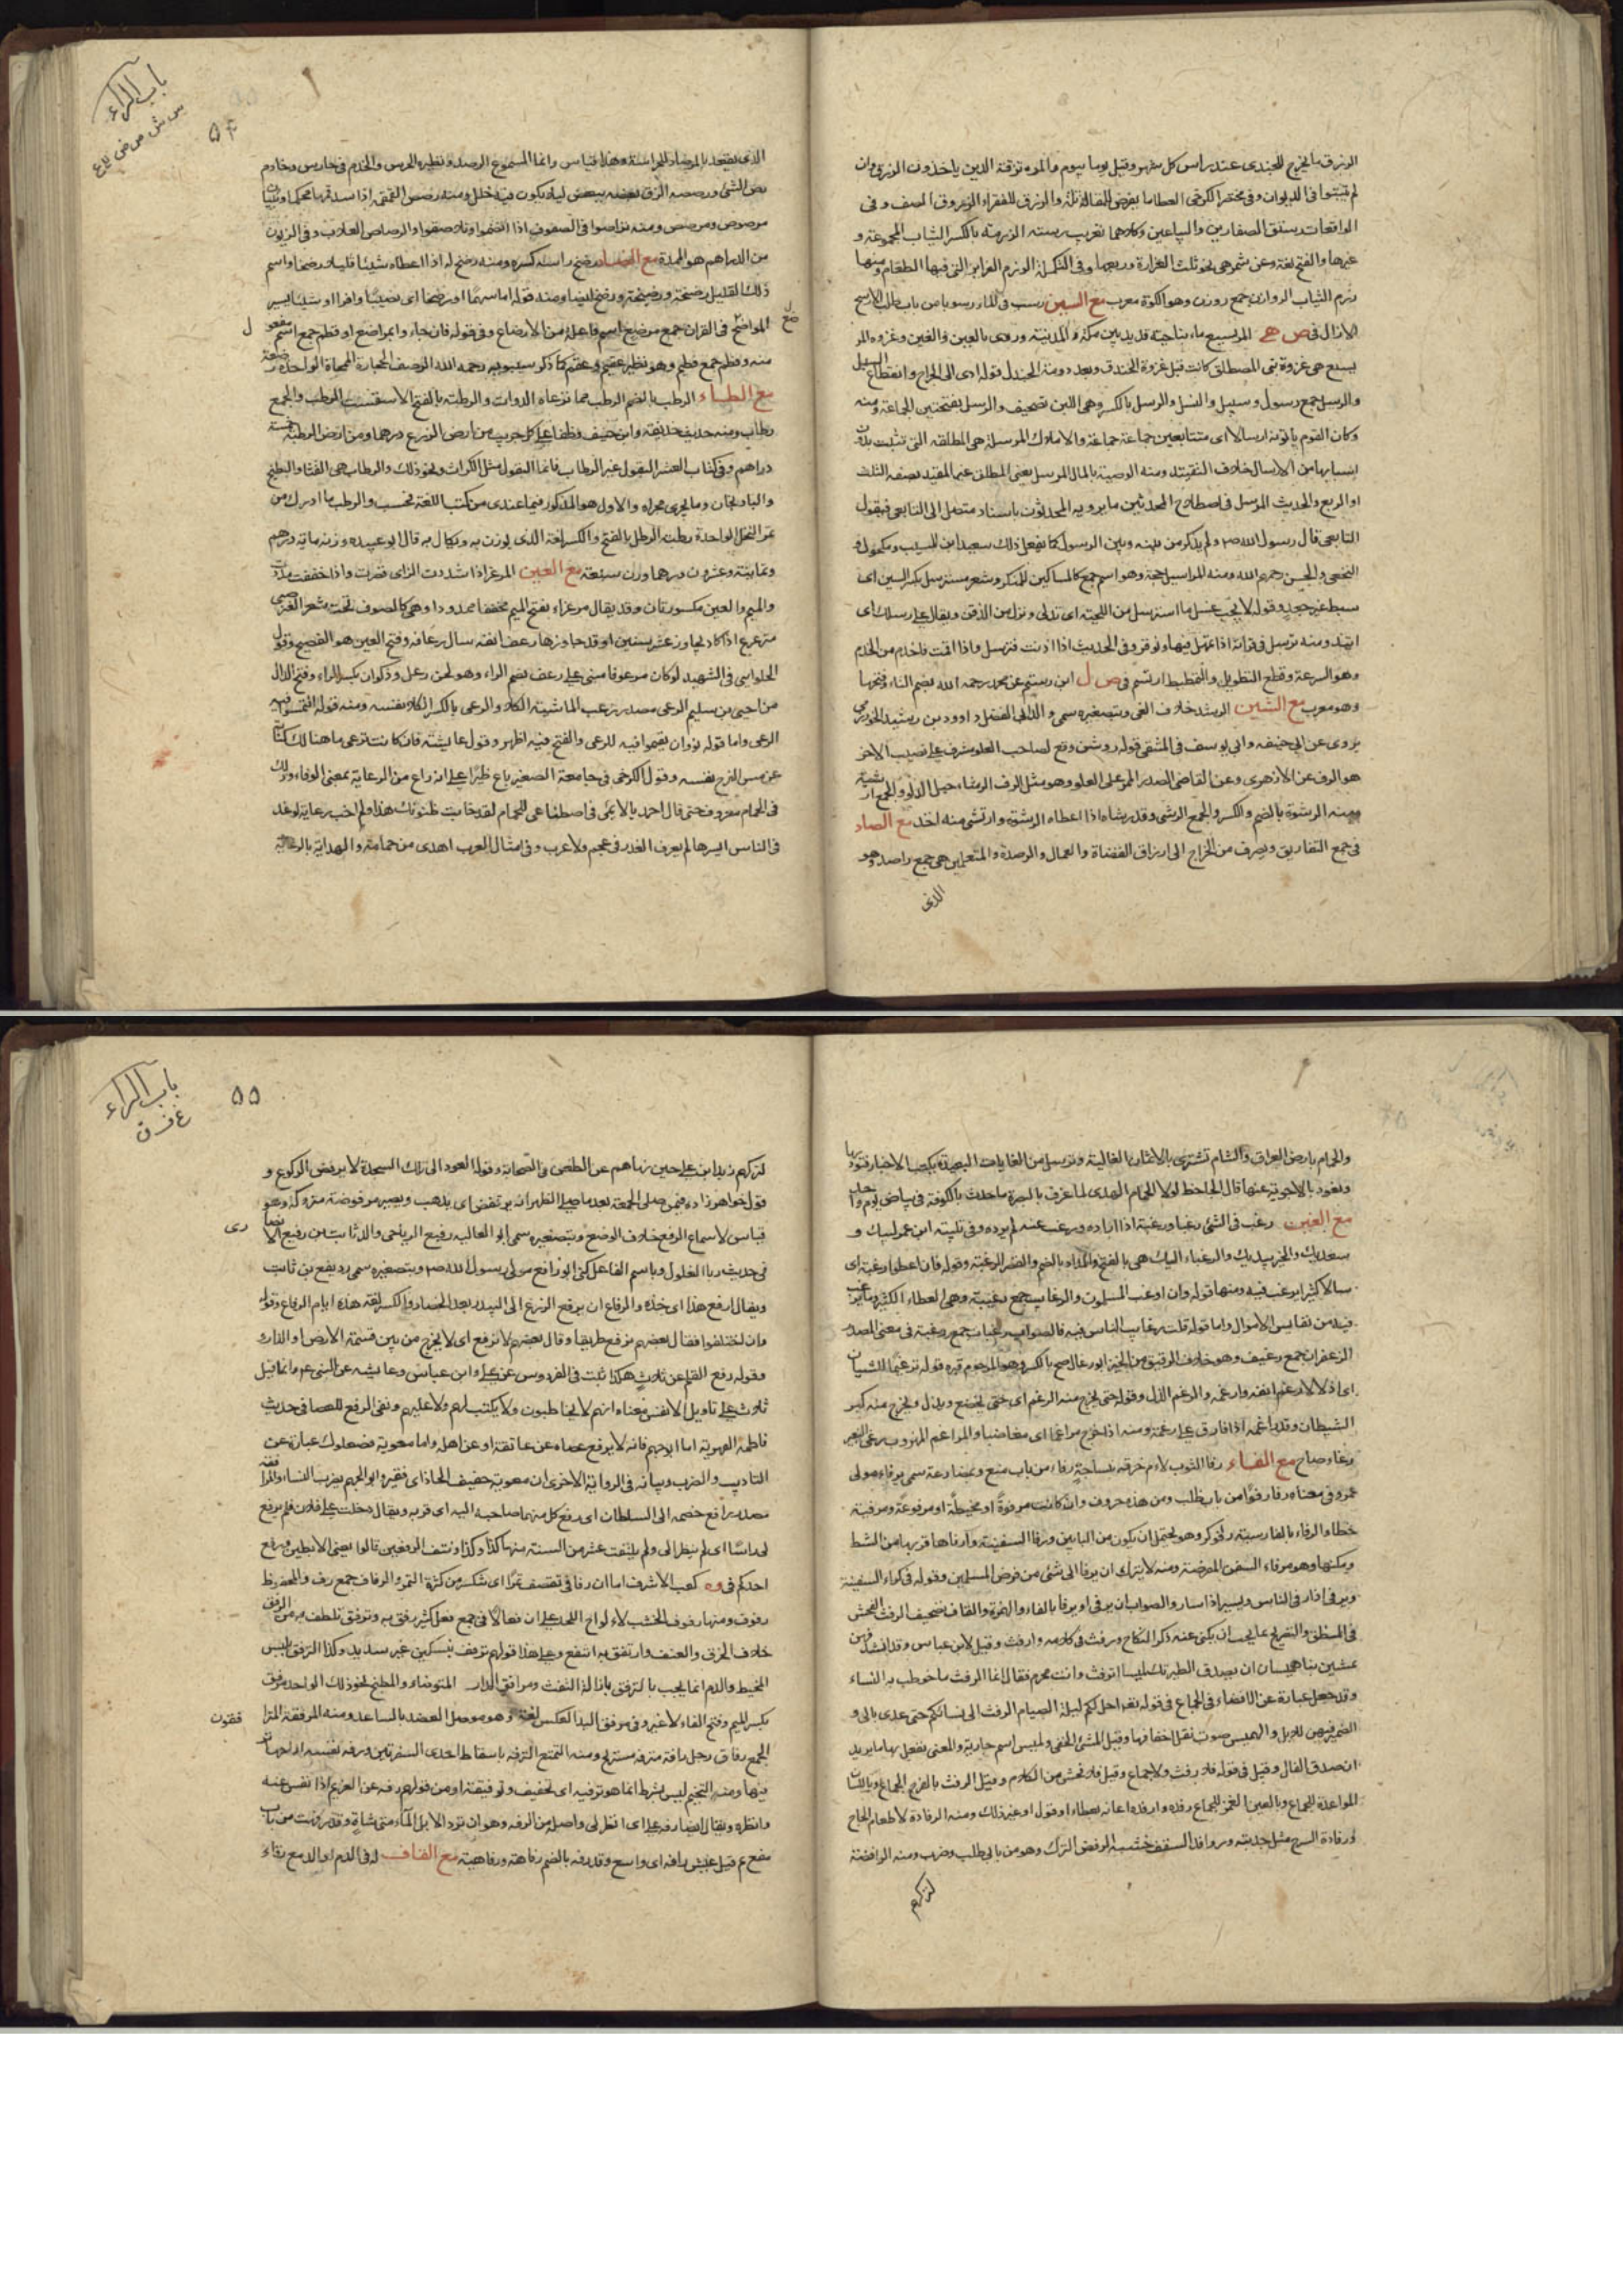 الرزق ما يخرج للجندى عند راس كل شهر وقيل يوما بيوم والمرتزقة الذين ياخذون الرزق وان
لم يثبتوا فى الديوان وفى مختصر الكرخى العطاما يفرض للمقاتلة والرزق للفقراء
الواقعات رستق الصفارين والبياعين وكلاهما تعريب رسته الرزمة بالكسر الثياب المجموعة و
غيرها والفتح لغة وعن شمر هى نحو ثلث الغرارة وربعها وفى التكملة الرزم الغراير التى فيها الطعام ومنها
رزم الثياب الروازن جمع روزن وهو الكوة معرب مع السين رسب فى الماء رسوبا من باب طلب
المريسيع ماء بناحية قديد بين مكة والمدينة وروى بالعين والغين وغزوة المر
يسيع هى غزوة بنى المصطلق كانت قبل غزوة الخندق وبعد دومة الجندل قوله ادى الى الحراج وانقطاع السبل
والرسل جمع رسول وسبيل والنسل والرسل بالكسر وهى اللبن تصحيف والرسل بفتحتين الجماعة ومنه
وكان القوم ياتونه ارسالا اى متتابعين جماعة جماعة والاملاك المرسلة هى المطلقة التى تثبت بدون
اسبابها من الارسال خلاف التقييد ومنه الوصية بالمال المرسل يعنى المطلق غير المقيد بصفة الثلث
او الربع والحديث المرسل فى اصطلاح المحدثين ما يرويه المحدثون باسناد متصل الى التابعى فيقول
التابعى قال رسول الله ولم يذكر من بينه وبين الرسول كما يفعل ذلك سعيد ابن المسيب ومكحول و
النخعى والحسن رحمهم الله ومنه المراسيل حجة وهو اسم جمع كالمناكير للمنكر وشعر مسترسل بكسر السين اى
سبط غير جعد وقوله لا يجب غسل ما استرسل من اللحية اى تدلى ونزل من الذقن ويقال على رسلك اى
اتئد ومنه ترسل فى قراته اذا تمهل فيها وتوقر وفى الحديث اذا اذنت فترسل واذا اقمت فاحذم من الحذم
وهو السرعة وقطع التطويل والتمطيط ارتسم فى ص ل ابن رستم عن محمد رحمه الله بضم التاء وفتحها
وهو معرب مع الشين الرشد خلاف الغى وبتصغيره سمى والد ابى الفضل داوود بن رشيد الخوارزمى
يروى عن ابى حنيفة وابى يوسف فى المنتقى قوله روشن وقع لصاحب العلو مشرف على نصيب الاخر
هو الرف عن الازهرى وعن القاضى الصدر الممر على العلو وهو مثل الرف الرشاء حبل الدلو والجمع ارشية
ومنه الرشوة بالضم والكسر والجمع الرشى وقد رشاه اذا اعطاه الرشوة وارتشى منه اخذ مع الصاد
فى جمع التفاريق ويصرف من الخراج الى ارزاق القضاة والعمال والرصدة والمتعلمين هى جمع راصد وهو
الذى
باب الراء
س ش ص ض ط ع
٥٤
الذى يقعد بالمرصاد للحراسة وهذا قياس وانما المسموع الرصد ونظيره الحرس والخدم فى حارس وخادم
رص الشئ ورصصه الزق بعضه ببعض ليلا يكون فيه خلل ومنه رصص القمقمة اذا سد فمها محكما وبنيان
مرصوص ومرصص ومنه تراصوا فى الصفوف اذا انضموا وتلاصقوا والرصاص العلاب وفى الزيوف
من الدراهم هو المموه مع الضاد رضخ راسه كسره ومنه رضخ له اذا اعطاه شيئا قليلا رضخا واسم
ذلك القليل رضخة ورضيخة ورضخ ايضا ومنه قوله اما سهما او رضخا اى نصيبا وافرا او شيئا يسير
المراضع فى القران جمع مرضع اسم فاعلة من الارضاع وفى قوله فان جاء وا بمراضع او فطم جمع اسم مفعو ل
منه وفطم جمع فطيم وهو نظير عقيم وعقم كما ذكر سيبويه رحمه الله الرضف الحجارة المحماة الواحدة رضفة
مع الطاء الرطب بالضم الرطب مما ترعاه الدواب والرطبة بالفتح الاسفست الرطب والجمع
رطاب ومنه حديث حذيفة وابن حنيف وظفا على كل جريب من ارض الزرع درهما ومن ارض الرطبة خمسة
دراهم وفى كتاب العشر البقول غير الرطاب فانما البقول مثل الكراث ونحو ذلك والرطاب هى القثاء والبطيخ
والباذنجان وما يجرى مجراه والاول هو المذكور فيما عندى من كتب اللغة فحسب والرطب ما ادرك من
تمر النخل الواحدة رطبة الرطل بالفتح والكسر لغة الذى يوزن به ويكال به قال ابو عبيده وزنه مائة درهم
وثمانية وعشرون درهما وزن سبعة مع العين المرعز اذا شددت الزاى قصرت واذا خففت مددت
والميم والعين مكسورتان وقد يقال مرعزاء بفتح الميم مخففا ممدودا وهى كالصوف تحت شعر العنز صبى
مترعرع اذا كاد يجاوز عشر سنين او قد جاوزها رعف انفه سال رعافه وفتح العين هو الفصيح وقول
الحلوانى فى الشهيد لو كان مرعوفا مبنى على رعف بضم الراء وهو لحن رعل وذكوان بكسر الراء وفتح الذال
من احيى بن سليم الرعى مصدر رعت الماشية الكلاء والرعى بالكسر الكلاء نفسه ومنه قوله التمسوا فيه
الرعى واما قوله نزوان يقيموا فيه للرعى والفتح فيه اظهر وقول عائشة فان كانت ترعى ما هنالك كنت
عن مس الفرج نفسه وقول الكرخى فى جامعه الصغير باع ظئرا على انه راع من الرعاية بمعنى الوفاء وذلك
فى الحمام معروف حتى قال احمد بالائمى فى اصطناعى للحمام لقد خابت ظنونك هذا ولم اخب رعاية لو غد
فى الناس ايسرها لم يعرف الغدر فى عجم ولا عرب وفى امثال العرب اهدى من حمامة والهداية بالرعاية
والحمام بارض العراق والشام تشترى بالاثمان الغالية وترسل من الغايات البعيدة بكتب الاخبار فتوديها
وتعود بالاجوبة عنها قال الجاحظ لولا الحمام الهدى لما عرف بالبصرة ما حدث بالكوفة فى بياض يوم واحد
مع الغين رغب فى الشئ رغبا ورغبة اذا اراده ورغب عنه لم يرده وفى تلبية ابن عمر لبيك و
سعديك والخير بيديك والرغباء اليك هى بالفتح والمد او بالضم والقصر الرغبة وقوله فان اعطوا رغبة اى
مالا كثيرا يرغب فيه ومنها قوله وان ارغب المسلمون والرغايب جمع رغيبة وهى العطاء الكثير وما يرغب
فيه من نفايس الاموال واما قوله قلت رغايب الناس فيه فالصواب رغبات جمع رغبة فى معنى المصدر
الرغفان جمع رغيف وهو خلاف الرقيق من الخبز ابو رغال صح بالكسر وهو المرجوم قبره قوله ترغيما للشيطان
اى اذلالا لارغم انفه وارغمه والرغم الذل وقوله حتى يخرج منه الرغم اى حتى يخضع ويذل ويخرج منه كبر
الشيطان وقد راغمه اذا فارق على رغمه ومنه اذا خرج مراغما اى مغاضبا والمراغم المهروب رغى البعير
رغاء صاح مع الفاء رفا الثوب لاءم خرقه بنساجة رفاء من باب منع وبمضارعه سمى يرفاء مولى
عمر وفى معناه رفا رفوا من باب طلب ومن هذه حروف وان كانت مرفوة او مخيطة او مرفوعة ومرقية
خطا والرفاء بالفارسية رفوكر وهو يحتمل ان يكون من البابين ورفا السفينة وارفاها قربها من الشط
وسكنها وهو مرفاء السفن للفرضة ومنه لا يترك ان يرفا الى شئ من فرض المسلمين وقوله فى كراء السفينة
ويرقى اذا رقى الناس ويسير اذا سار والصواب ان يرفى او يرفا بالفاء والهمزة والقاف تصحيف الرفث الفحش
فى المنطق والتصريح بما يجب ان يكنى عنه ذكر النكاح ورفث فى كلامه وارفث وقيل لابن عباس وقد انشد
وهن يمشين بنا هميسا ان يصدق الطير ننك لميسا اترفث وانت محرم فقال انما الرفث ما خوطب به النساء
وقد جعل عبارة عن الافضاء فى الجماع فى قوله تع احل لكم ليلة الصيام الرفث الى نسائكم حتى عدى بالى و
الضمير فيهن للابل والهميس صوت نقل اخفافها وقيل المشى الخفى ولميس اسم جارية والمعنى نفعل بها ما نريد
ان صدق الفال وقيل فى قوله فلا رفث ولا جماع وقيل فلا فحش من الكلام وقيل الرفث بالفرج الجماع وباللسان
المواعدة للجماع وبالعين الغمز للجماع رفده وارفده اعانه بعطاء او قول او غير ذلك ومنه الرفادة لاطعام الحاج
ورفادة السرج مثل جدبته وروافد السقف خشبه الرفض الترك وهو من بابى طلب وضرب ومنه الرافضة
لتركهم
باب الراء
غ ف ق
٥٥
لتركهم زيد ابن على حين نهاهم عن الطعن فى الصحابة وقوله العود الى تلك السجدة لا يرفض الركوع و
قول خواهرزاده فيمن صلى الجمعة بعد ما صلى الظهر انه يرتفض اى يذهب ويصير مرفوضة متروكة وهو
قياس لا سماع الرفع خلاف الوضع وبتصغيره سمى ابو العاليه رفيع الرياحى والد ثابت بن رفيع الانصا رى
فى حديث ربا الغلول وباسم الفاعل كنى ابو رافع مولى رسول الله وبتصغيره سمى رويفع بن ثابت
ويقال ارفع هذا اى خذه والرفاع ان يرفع الزرع الى البيدر بعد الحصاد والكسر لغة هذه ايام الرفاع وقوله
وان اختلفوا فقال بعضهم نرفع طريقا وقال بعضهم لا نرفع اى لا يخرج من بين قسمة الارض او الدار
وقوله رفع القلم عن ثلاث هكذا ثبت فى الفردوس عن على وابن عباس وعايشه عن النبى عم وانما قيل
ثلاث على تاويل الانفس معناه انهم لا يخاطبون ولا يكتب لهم ولا عليهم ونفى الرفع للعصا فى حديث
فاطمة الفهرية اما ابو جهم فانه لا يرفع عصاه عن عاتقه او عن اهله واما معوية فصعلوك عبارة عن
التاديب والضرب وبيانه فى الرواية الاخرى ان معوية خفيف الحاذ اى فقير وابو الجهم يضرب النساء والمرافعة
مصدر رافع خصمه الى السلطان اى رفع كل منهما صاحبه اليه اى قربه ويقال دخلت على فلان فلم يرفع
لى راسا اى لم ينظر الى ولم يلتفت عشر من السنة منها كذا وكذا ونتف الرفغين قالوا يعنى الابطين ورفع
احدكم فى وه كعب الاشرف اما ان رفا فى تقصف تمرا اى تتكسر من كثرة التمر والرفاف جمع رف والمحفوظ
رفوف ومنها رفوف الخشب لالواح اللحد على ان فعالا فى جمع فعل كثير رفق به وترفق تلطف به من الرفق
خلاف الخرق والعنف وارتفق به انتفع وعلى هذا قولهم ترفق بسكين غير سديد وكذا الترفق بلبس
المخيط والدم انما يجب بالترفق بازالة التفث ومرافق الدار المتوضاء والمطبخ ونحو ذلك الواحد مرفق
بكسر الميم وفتح الفاء لا غير وفى مرفق اليد العكس لغة وهو موصل العضد بالساعد ومنه المرفقة المترا فقون
الجمع رفاق رجل رافه مترفه مستريح ومنه التمتع الترفه باسقاط احدى السفرتين ورفه نفسه اراحها
منها ومنه التنجيم ليس بشرط انما هو ترفيه اى تخفيف وتوفيقة او من قولهم رفه عن الغريم اذا نفس عنه
وانظره ويقال ايضا رفه على اى انظرنى واصله من الرفه وهو ان ترد الابل الماء متى شات وقد رفهت من باب
منع ثم قيل عيش رافه اى واسع وقد رفه بالضم رفاهة ورفاهية مع القاف له فى الدم اوالدمع رقاء